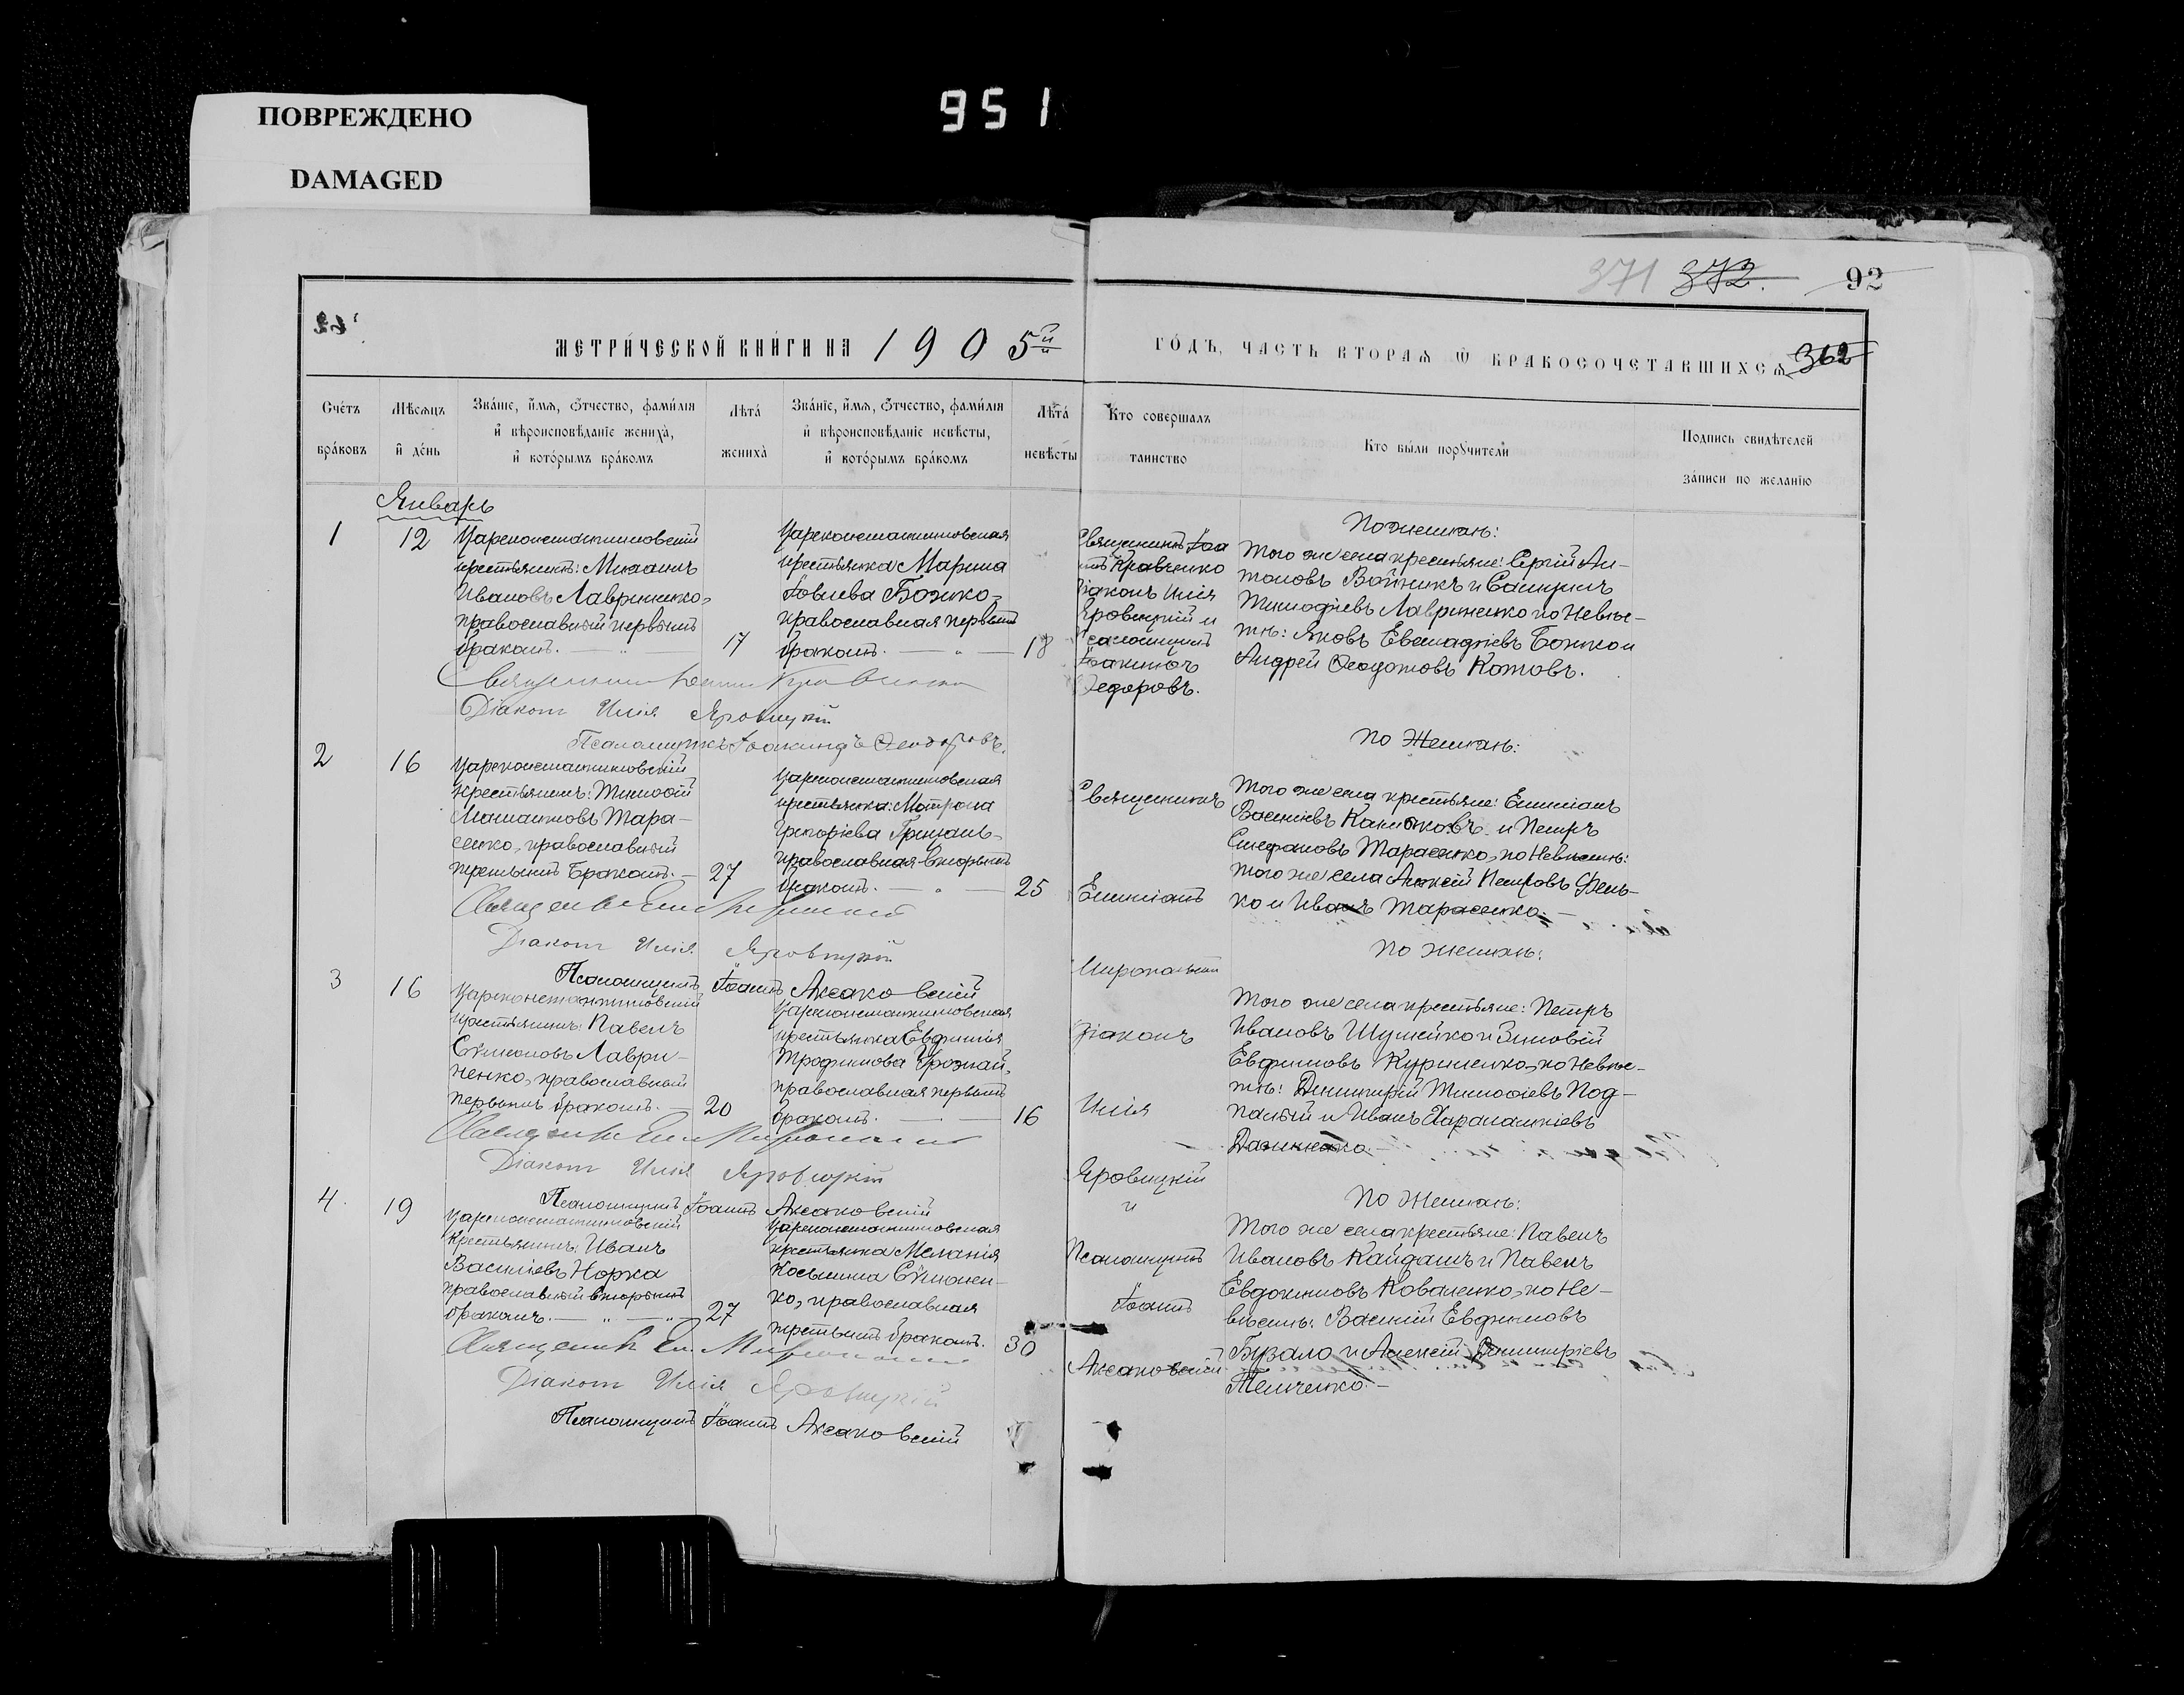 951
ПОВРЕЖДЕНО
DAMAGED
371 372. 92
МЕТРИ́ЧЕСКОЙ КНИ́ГИ НА 1905й
ГО́ДЪ, ЧАСТЬ ВТОРАѦ Ѿ БРАКОСОЧЕТАВШИХСѦ 362
Сче́тъ бра́ковъ
Мѣ́сѧцъ и҆ де́нь
Зва́нїе, и҆́мѧ, ѻ҆́тчество, фами́лїѧ и҆ вѣроисповѣ́данїе жениха̀, и҆ кото́рымъ бра́комъ
Лѣта̀ жениха̀
Зва́нїе, и҆́мѧ, ѻ҆́тчество, фами́лїѧ и҆ вѣроисповѣ́данїе невѣ́сты, и҆ кото́рымъ бра́комъ
Лѣта̀ невѣ́сты
Кто совершалъ таинство
Кто были порꙋчители
Подпись свидѣтелей записи по желанїю
Январь
1
12
Цареконстантиновскій
крестьянинъ: Михаилъ
Ивановъ Лавриненко,
православный первымъ
бракомъ.
17
Цареконстантиновская
крестьянка Марина
Іовлева Божко,
православная первымъ
бракомъ.
18
Священникъ Іоа
ннъ Кравченко
Діаконъ Илія
Яровицкій и
Псаломщикъ
Іоакимъ
Федоровъ.
По женихѣ:
Того же села крестьяне: Сергій Ан-
тоновъ Войникъ и Самуилъ
Тимофіевъ Лавриненко по Невѣс-
тѣ: Яковъ Евстафіевъ Божко и
Андрей Феодотовъ Котовъ.
Священникъ Іоаннъ Кравченко
Діаконъ Илія Яровицкій
Псаломщикъ Іоакимъ Феодоровъ.
2
16
Цареконстантиновскій
крестьянинъ: Тимофій
Тара-
сенко, православный
третьимъ бракомъ.
27
Цареконстантиновская
крестьянка: Матрона
Григорієва Грицань,
православная вторымъ
бракомъ.
25
Священникъ
Емиліанъ
діаконъ
Илія
Яровицкій
и
Псаломщикъ
Іоаннъ
Аксаковскій
По Женихѣ:
Того же села крестьяне: Емиліанъ
Василіевъ и Петръ
Стефановъ Тарасенко, по Невѣстѣ:
того же села Алексій Петровъ Фень-
ко и Иванъ Тарасенко.
Діаконъ Илія Яровицкій
Псаломщикъ Іоаннъ Аксаковскій
3
16
Цареконстантиновскій
крестьянинъ: Павелъ
Сѵмеоновъ Лаври-
ненко, православный
первымъ бракомъ.
20
Цареконстантиновская
крестьянка Евфимія
Трофимова Урожай,
православная первымъ
бракомъ.
16
По женихѣ:
Того же села крестьяне: Петръ
Ивановъ Шулейко и Зиновій
Евфимовъ Куриленко, по Невѣс-
тѣ: Димитрій Тимофіевъ Под-
палый и Иванъ Харалампіевъ
Діаконъ Илія Яровицкій
Псаломщикъ Іоаннъ Аксаковскій
4.
19
Цареконстантиновскій
Крестьянинъ: Иванъ
Василіевъ Норка
православный вторымъ
бракомъ.
27
Цареконстантиновская
крестьянка Меланія
Косьмина Сѵмонен-
ко, православная
третьимъ бракомъ.
30
По Женихѣ:
Того же села крестьяне: Павелъ
Ивановъ Кайдашъ и Павелъ
Евдокимовъ Коваленко, по Не-
вѣстѣ: Василій Евфимовъ
Бузало и Алексій Димитріевъ
Темченко.
Діаконъ Илія Яровицкій
Псаломщикъ Іоаннъ Аксаковскій